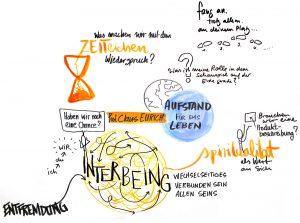 Was machen wir mit dem
ZEITzeichen
Widerspruch?
fang an.
trotz allem.
an deinem Platz...
Was ist meine Rolle in dem
Schauspiel auf der
Erde grade?
AUFSTAND
FÜR DAS
LEBEN
Haben wir noch
eine Chance?
Prof. Claus EURICH
Brauchen
wir eine
Produkt-
beschreibung?
WIR
du
ich
INTERBEING
WECHSELSEITIGES
VERBUNDEN SEIN
ALLEN SEINS
Spiritualität
als Wert
an Sich
ENTFREMDUNG